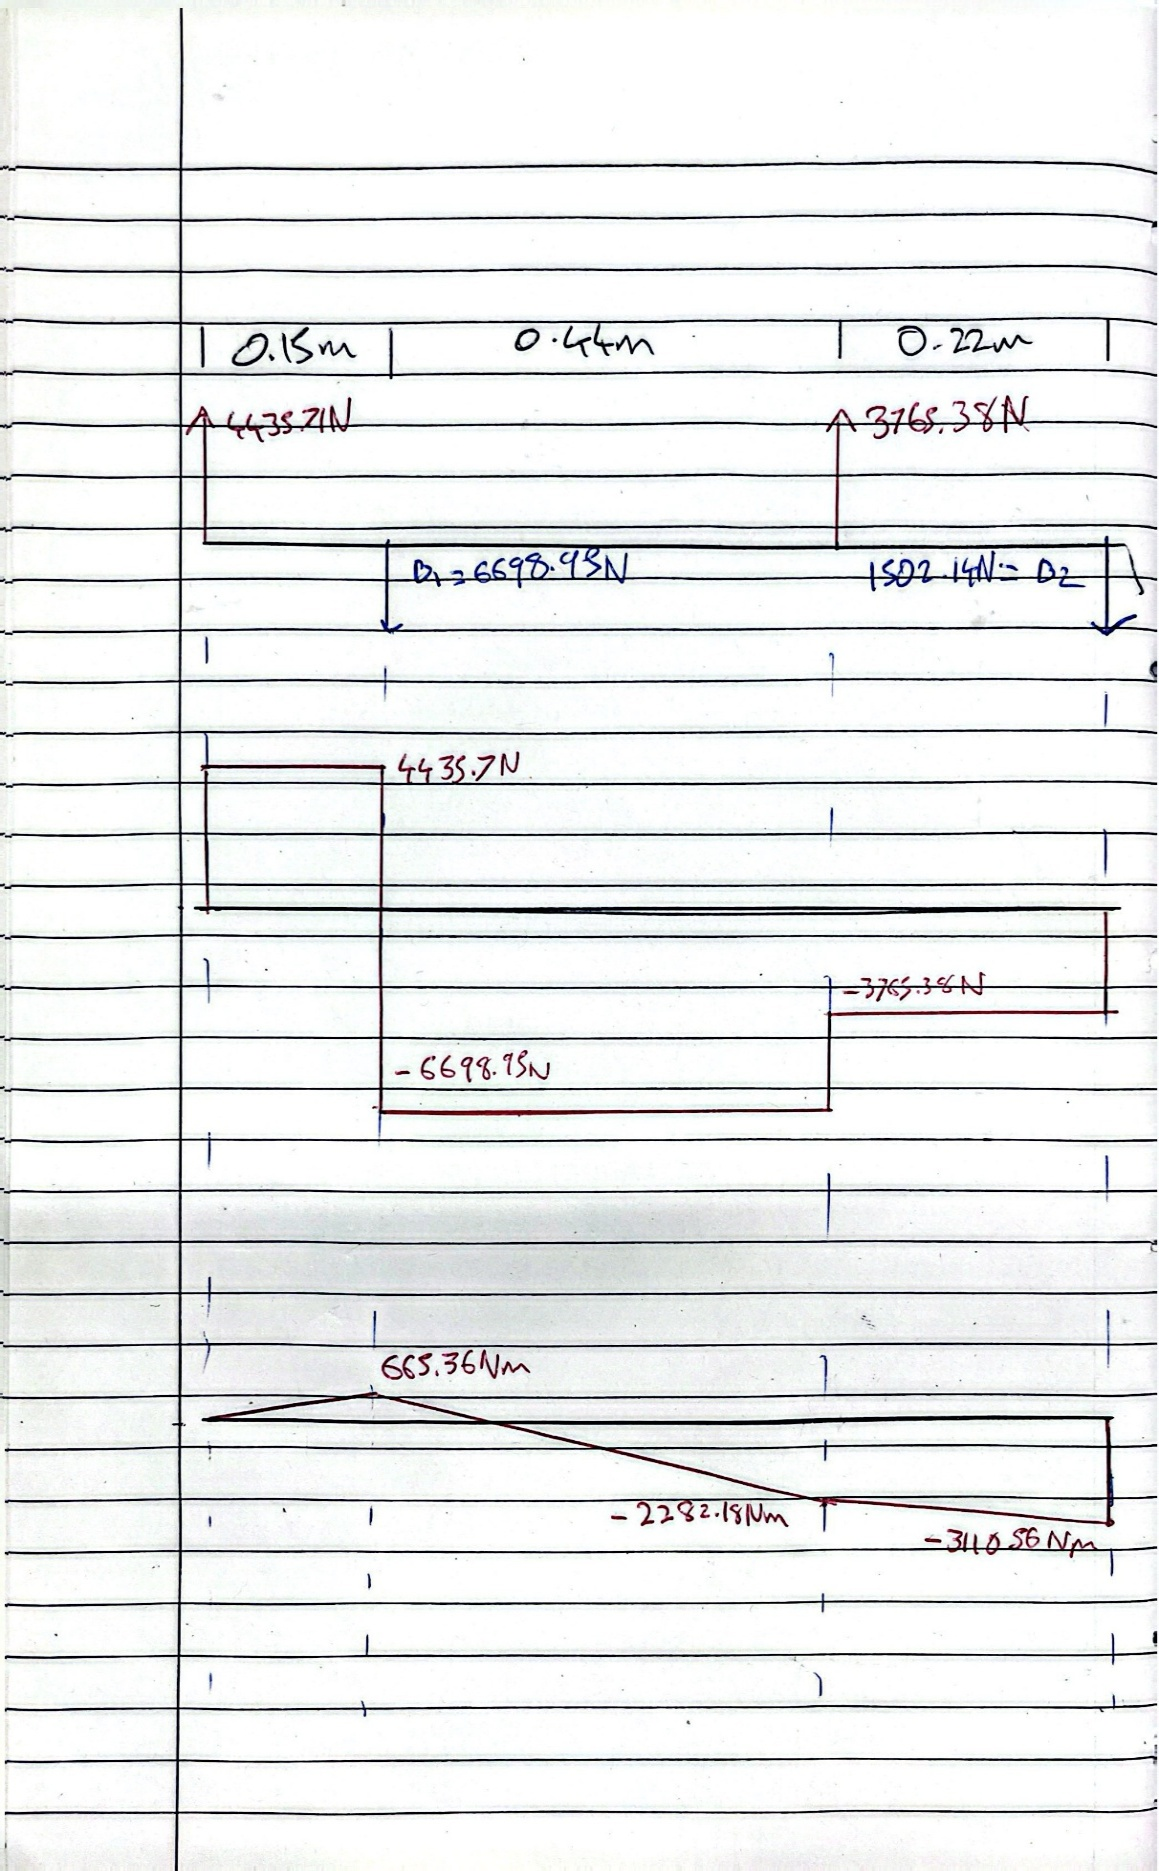 0.15m 0.44m 0.22m
4435.71N 3765.38N
B1 = 6698.95N 1502.14N = B2
4435.7N
-3765.38N
-6698.95N
665.36Nm
-2282.18Nm
-3110.56Nm